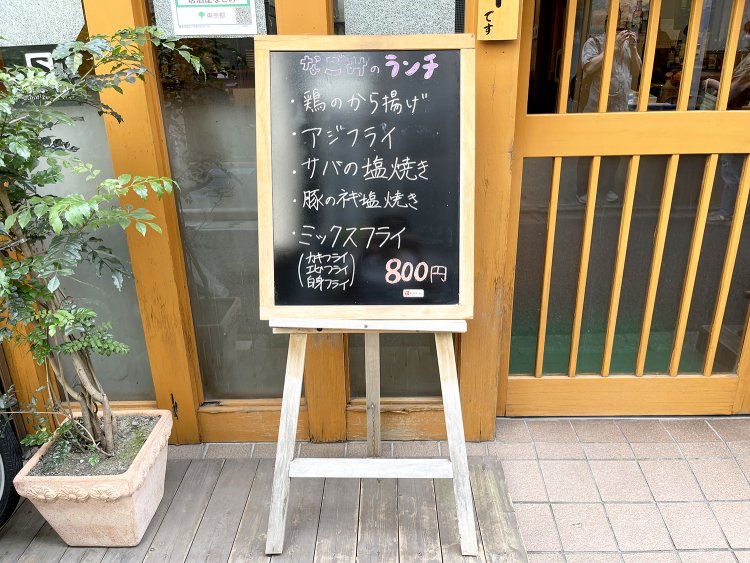 東京都
です
なごみのランチ
・鶏のから揚げ
・アジフライ
・サバの塩焼き
・豚のネギ塩焼き
・ミックスフライ
(カキフライ
エビフライ
白身フライ)
800円